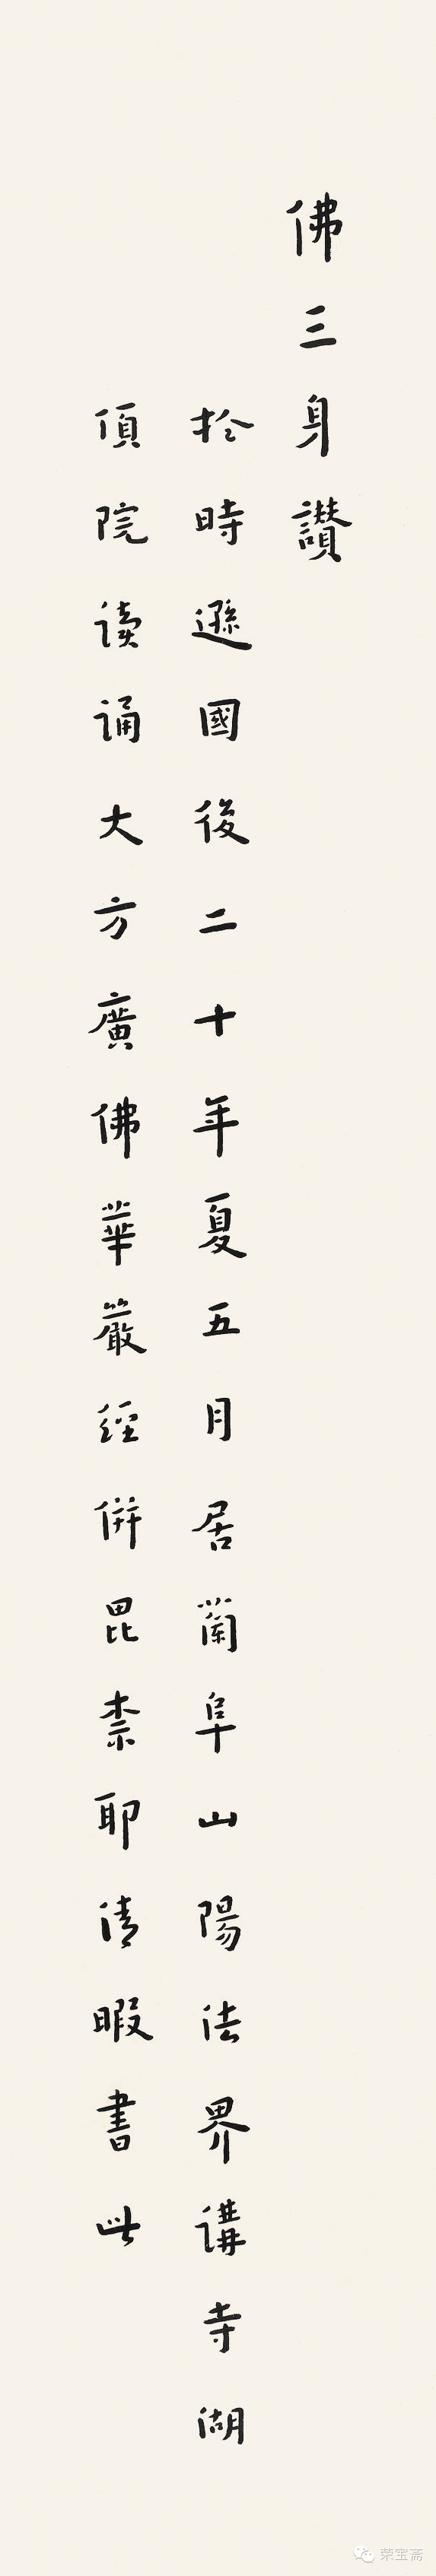 佛三身讃
扵時遜國後二十年夏五月居蘭阜山陽法界講寺湖
頂院读誦大方廣佛華嚴經併毘柰耶清暇書此
荣宝斋